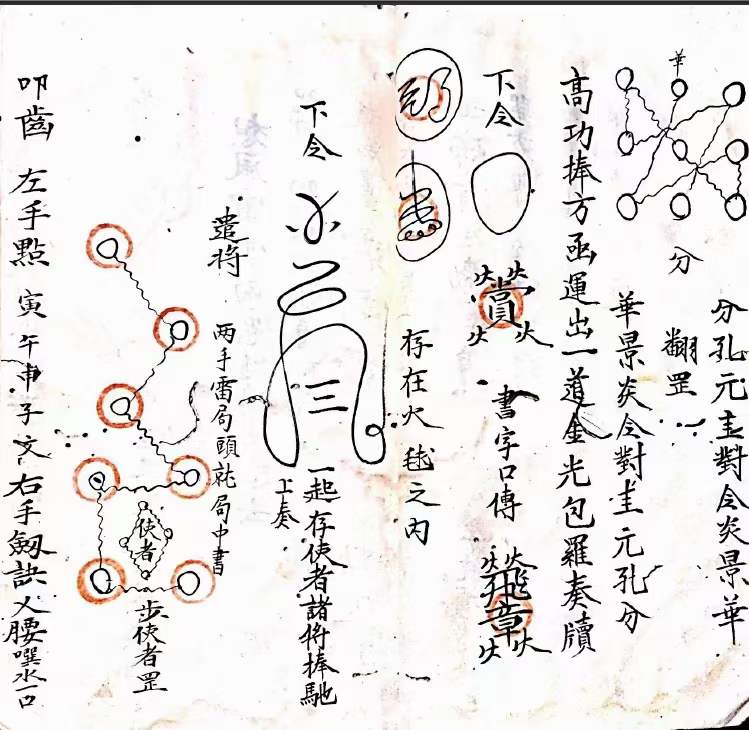 華
分
分孔元圭對令炎景華
翻罡
華景炎令對圭元孔分
高功捧方函運出一道金光包羅奏牘
下令
書字口傳
章
存在火毬之內
下令
三
一起存使者諸將捧馳
上奏
遣將
两手雷局頭就局中書
使者
步使者罡
叩齒 左手點 寅 午申子文右手劔訣乂腰噀水一口